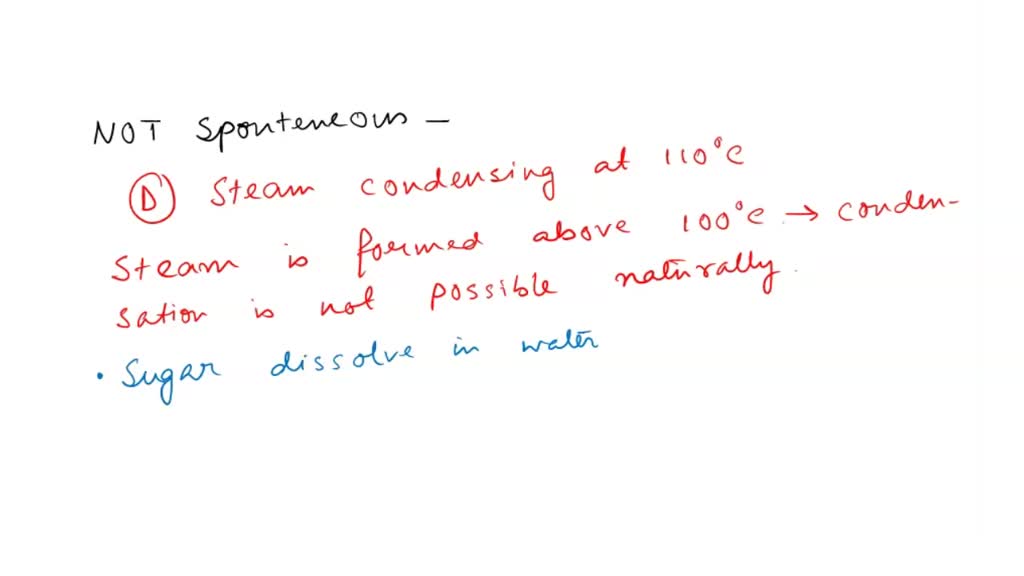 NOT Sponteneous –
(D) Steam condensing at 110°C
Steam is formed above 100°C → conden-
sation is not possible naturally.
• Sugar dissolve in water